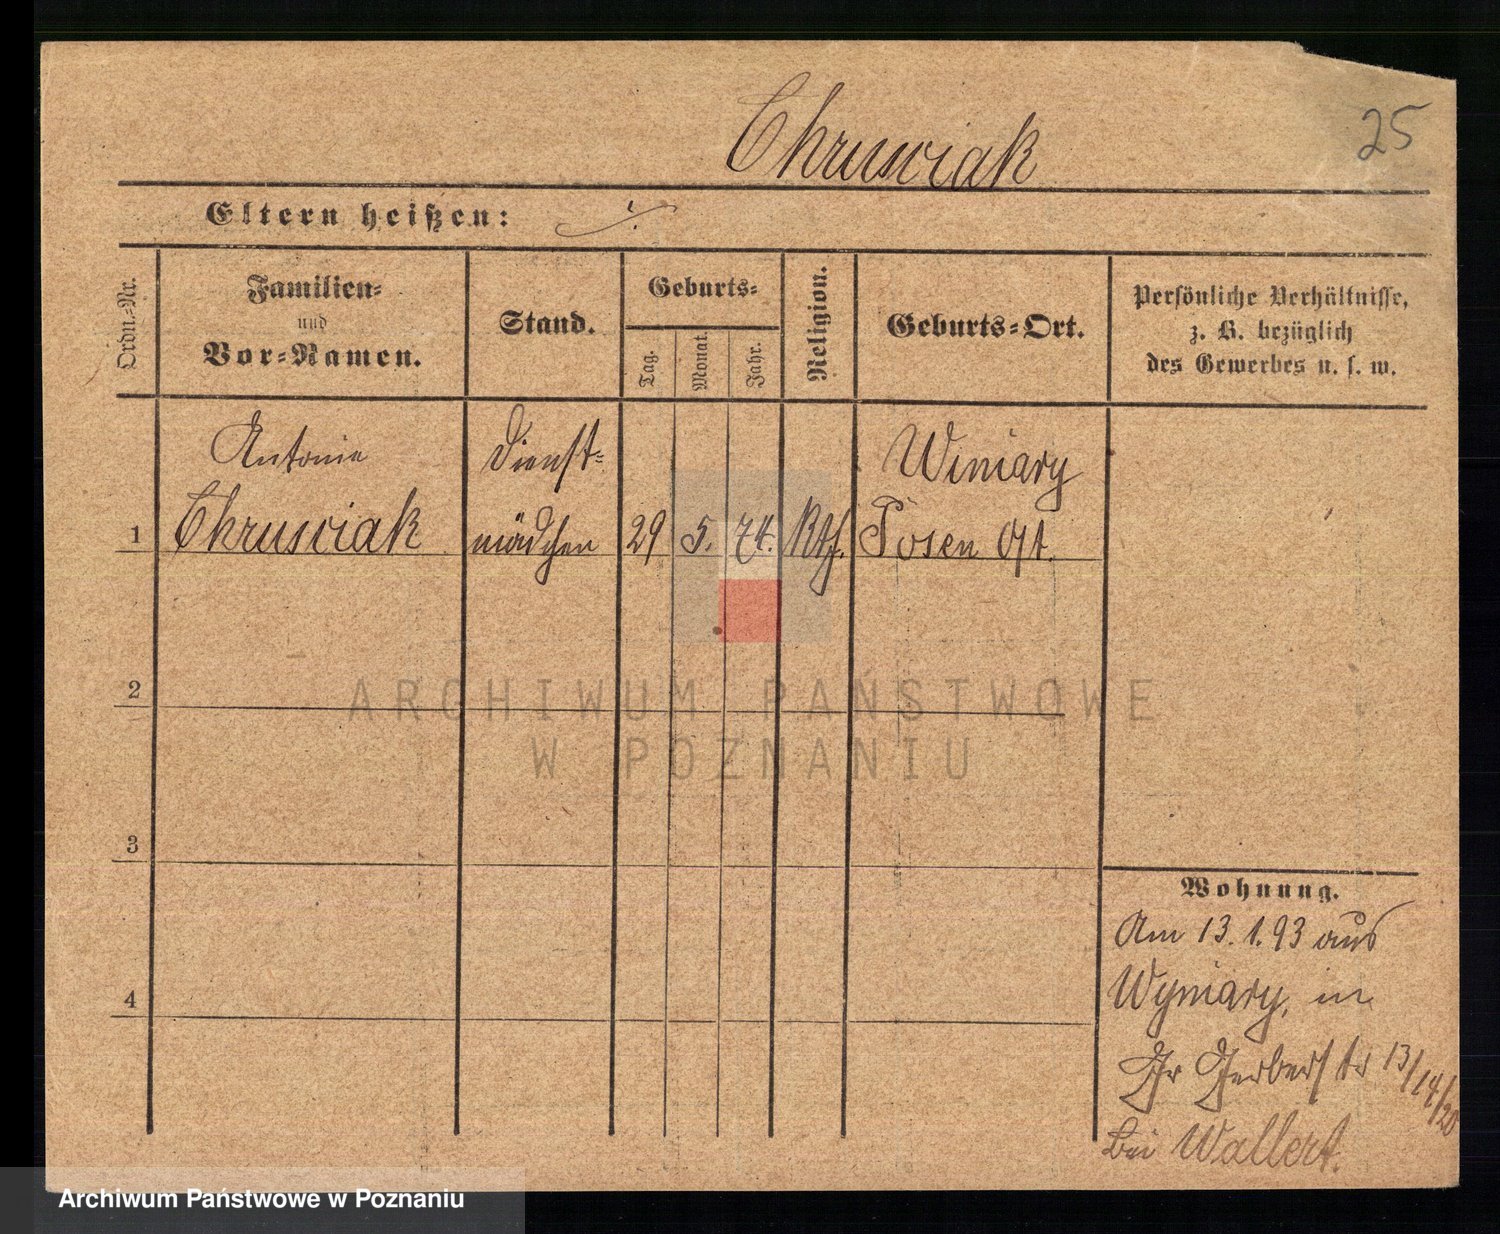 Chrusciak
25
Eltern heißen: ./.
Ordn.-Nr.
Familien-
und
Vor-Namen.
Stand.
Geburts-
Tag.
Monat.
Jahr.
Religion.
Geburts-Ort.
Persönliche Verhältnisse,
z. B. bezüglich
des Gewerbes u. s. w.
Antonie Dienst- Winiary
1 Chrusciak mädchen 29 5. 74. Kth. Posen Ost.
2
3
4
ARCHIWUM PAŃSTWOWE
W POZNANIU
Wohnung.
Am 13.1.93 aus
Wyniary, in
Gr Gerberstr 13/14/20
bei Wallert.
Archiwum Państwowe w Poznaniu